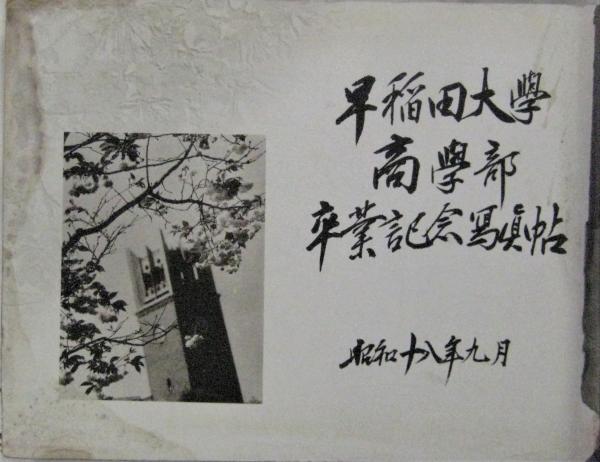 早稲田大學
商學部
卒業記念寫眞帖
昭和十八年九月